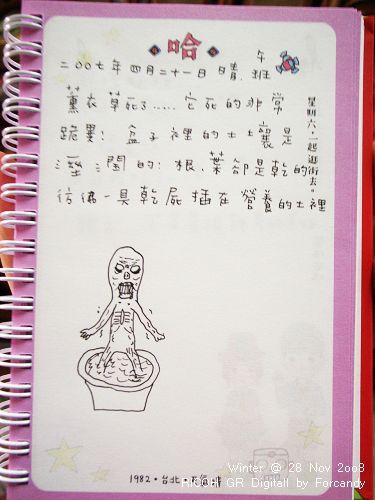 哈
二00七年四月二十一日 晴. 午班
星期六,一起逛街去。
薰衣草死了……它死的非常
詭異!盆子裡的土壤是
溼潤的;根、葉卻是乾的
彷彿一具乾屍插在營養的土裡
1982·台北·
Winter @ 28 Nov 2oo8
RICOH GR Digital1 by Forcandy